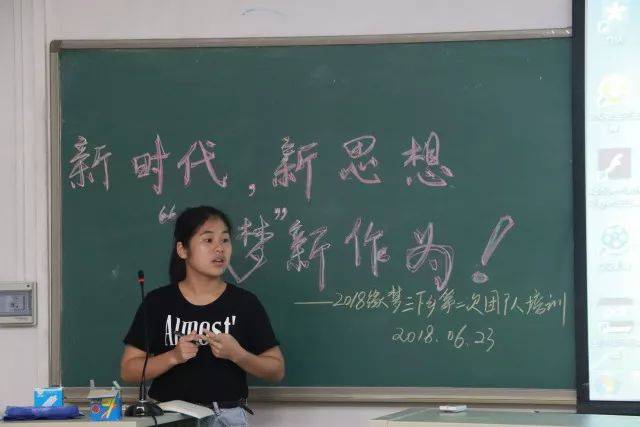 新时代，新思想
“梦”新作为！
——2018缘梦三下乡第二次团队培训
2018.06.23
Almost!